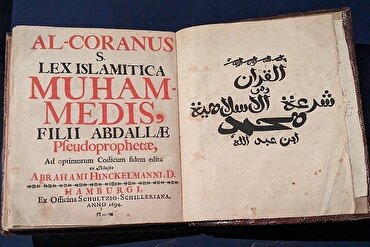 AL-CORANUS
S.
LEX ISLAMITICA
MUHAM-
MEDIS,
FILII ABDALLÆ
Pseudoprophetæ,
Ad optimorum Codicum fidem edita
ex Museo
ABRAHAMI HINCKELMANNI, D.
HAMBURGI,
Ex Officina SCHULTZIO-SCHILLERIANA,
ANNO 1694.
القرآن
وهو
شرعة الاسلامية
محمد
ابن عبد الله